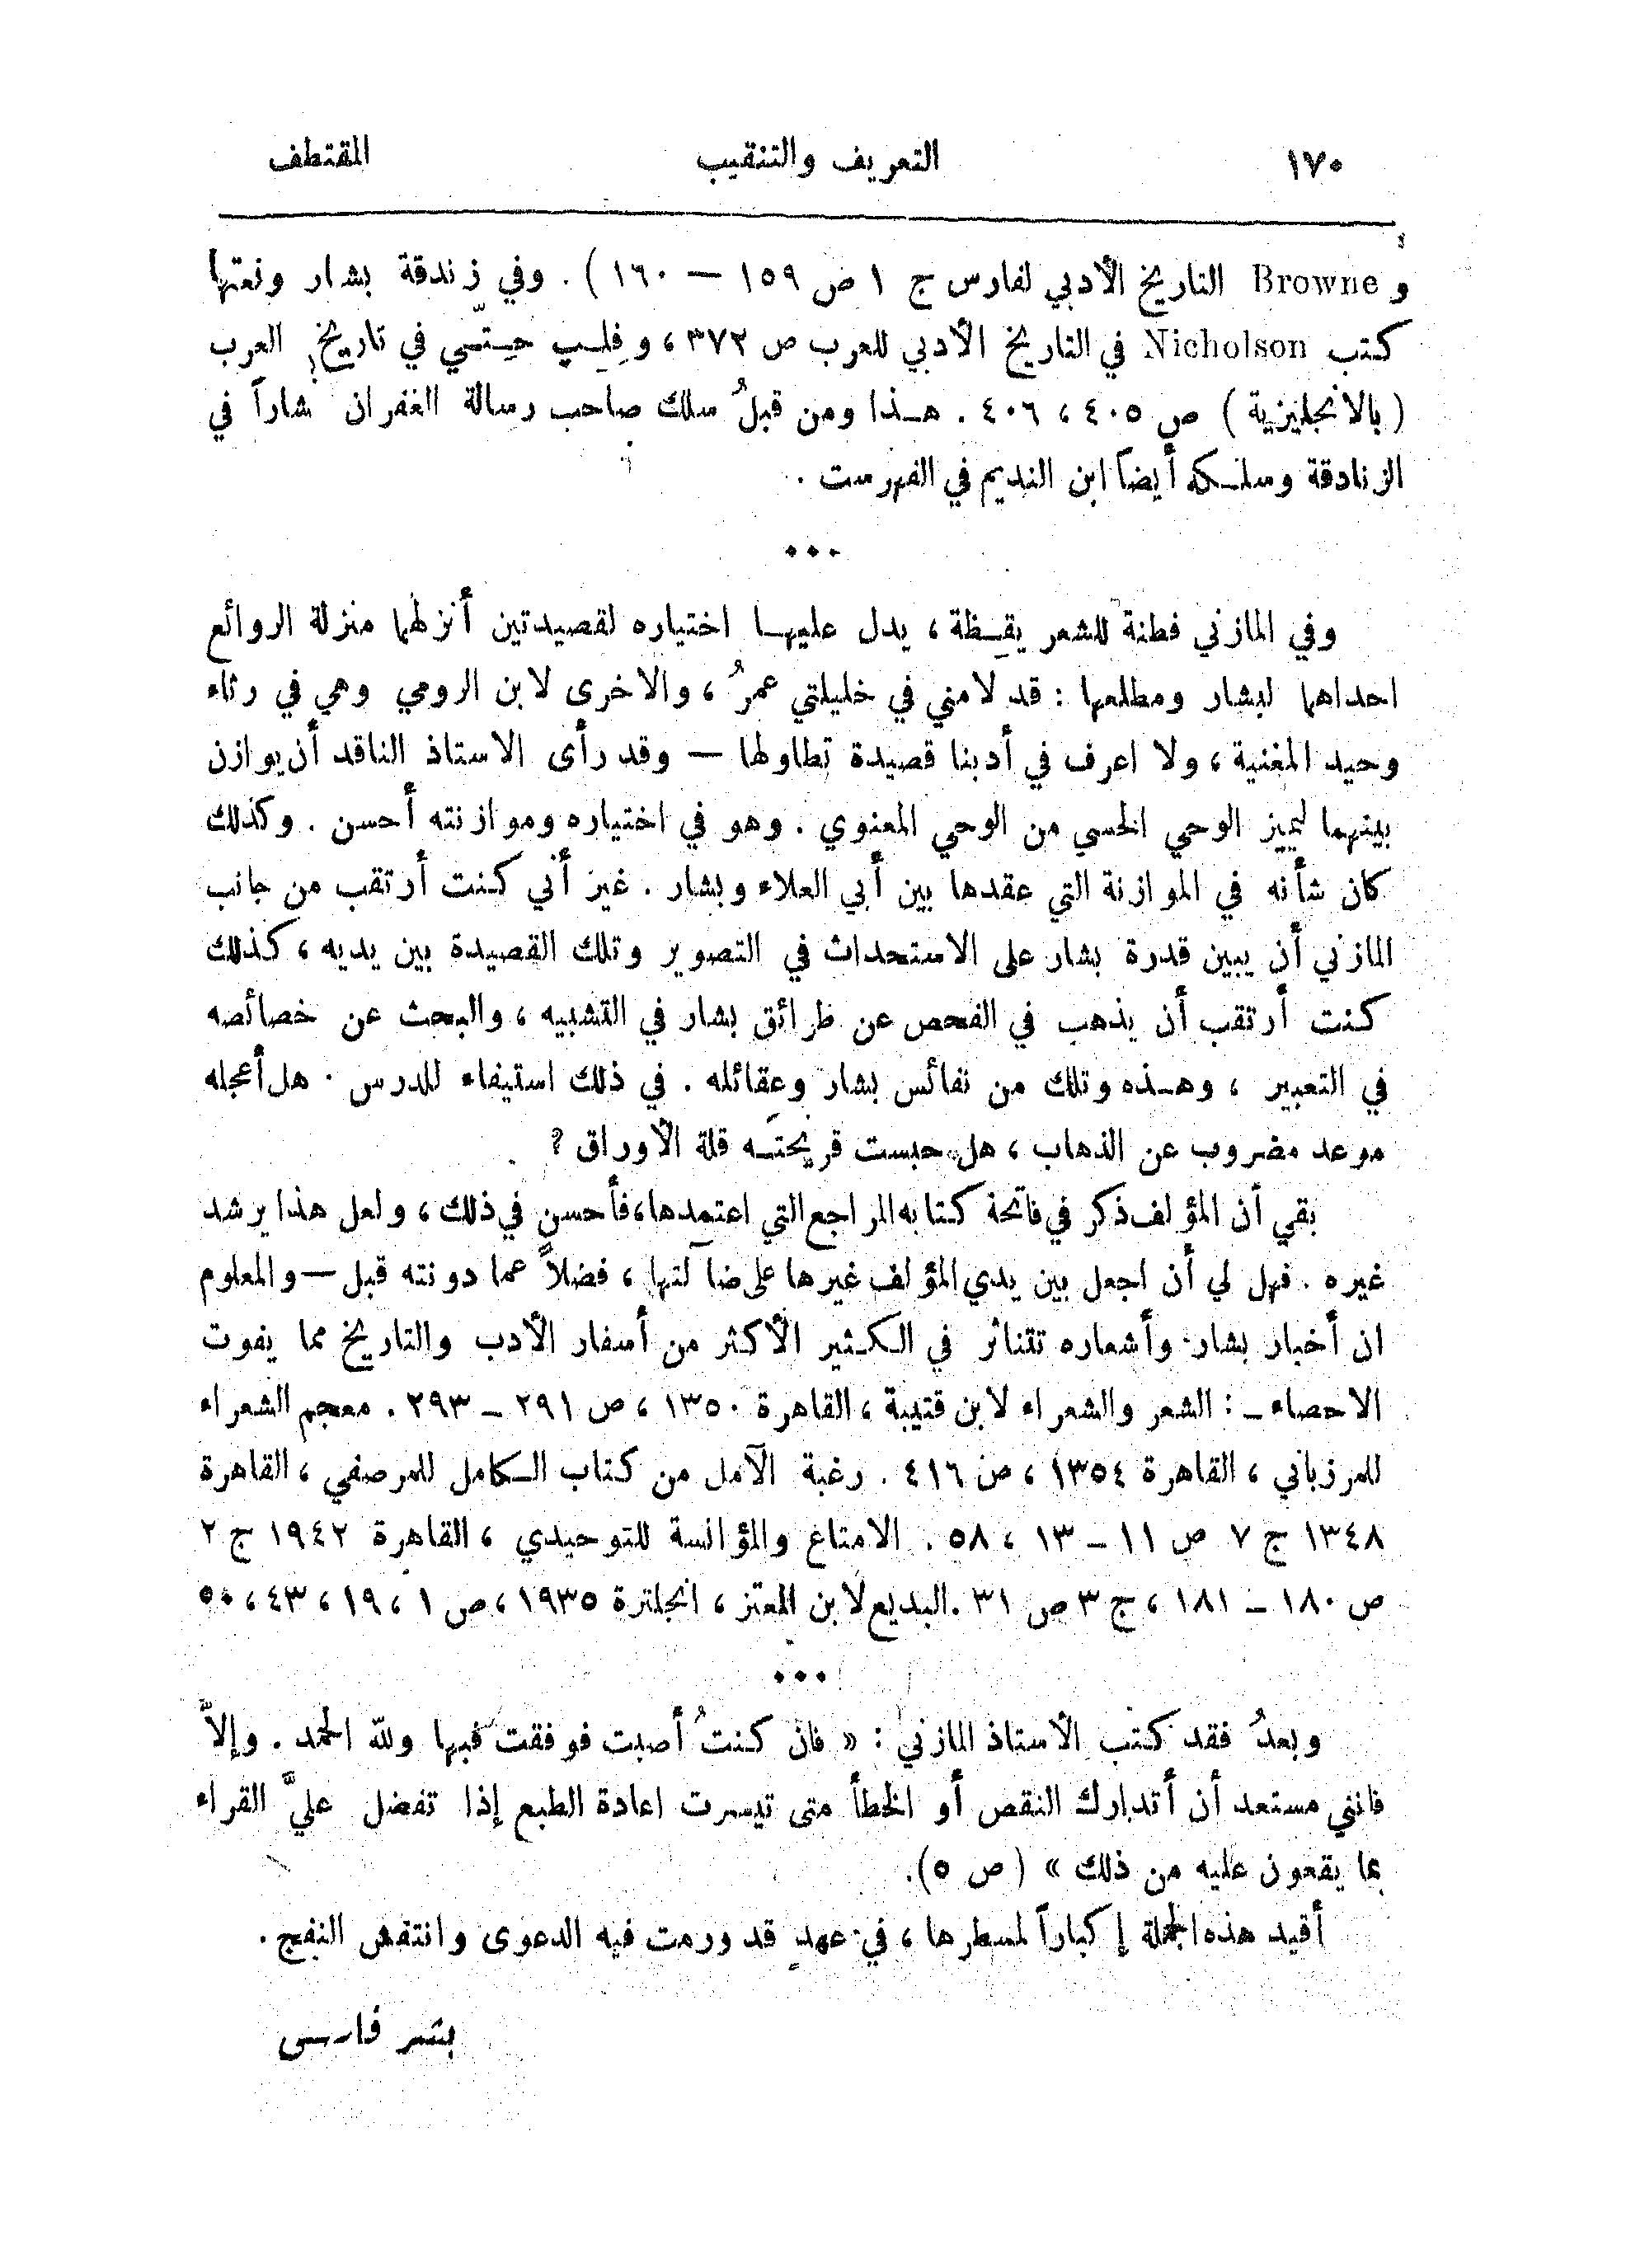 ١٧٠ التعريف والتنقيب المقتطف
و Browne التاريخ الأدبي لفارس ج ١ ص ١٥٩ — ١٦٠) . وفي زندقة بشار ونعتها
كتب Nicholson في التاريخ الأدبي للعرب ص ٣٧٢ ، وفِلِيب حِتّي في تاريخ العرب
(بالانجليزية) ص ٤٠٥ ، ٤٠٦ . هذا ومن قبلُ سلك صاحب رسالة الغفران شاراً في
الزنادقة وسلكه أيضاً ابن النديم في الفهرست .
•••
وفي المازني فطنة للشعر يقِظة ، يدل عليها اختياره لقصيدتين أنزلهما منزلة الروائع
احداهما لبشار ومطلعها : قد لامني في خليلتي عمرُ ، والاخرى لابن الرومي وهي في رثاء
وحيد المغنية ، ولا اعرف في أدبنا قصيدة تطاولها — وقد رأى الاستاذ الناقد أن يوازن
بينهما ليميز الوحي الحسي من الوحي المعنوي . وهو في اختياره وموازنته أحسن . وكذلك
كان شأنه في الموازنة التي عقدها بين أبي العلاء وبشار . غير أني كنت أرتقب من جانب
المازني أن يبين قدرة بشار على الاستحداث في التصوير وتلك القصيدة بين يديه ، كذلك
كنت أرتقب أن يذهب في الفحص عن طرائق بشار في التشبيه ، والبحث عن خصائصه
في التعبير ، وهذه وتلك من نفائس بشار وعقائله . في ذلك استيفاء للدرس . هل أعجله
موعد مضروب عن الذهاب ، هل حبست قريحتَه قلة الأوراق ؟
بقي أن المؤلف ذكر في فاتحة كتابه المراجع التي اعتمدها، فأحسن في ذلك ، ولعل هذا يرشد
غيره . فهل لي أن اجعل بين يدي المؤلف غيرها على ضآلتها ، فضلاً عما دونته قبل — والمعلوم
ان أخبار بشار وأشعاره تتناثر في الكثير الأكثر من أسفار الأدب والتاريخ مما يفوت
الاحصاء — : الشعر والشعراء لابن قتيبة ، القاهرة ١٣٥٠ ، ص ٢٩١ – ٢٩٣ . معجم الشعراء
للمرزباني ، القاهرة ١٣٥٤ ، ص ٤١٦ . رغبة الآمل من كتاب الكامل للمرصفي ، القاهرة
١٣٤٨ ج ٧ ص ١١ – ١٣ ، ٥٨ . الامتاع والمؤانسة للتوحيدي ، القاهرة ١٩٤٢ ج ٢
ص ١٨٠ – ١٨١ ، ج ٣ ص ٣١ . البديع لابن المعتز ، انجلترة ١٩٣٥ ، ص ١ ، ١٩ ، ٤٣ ، ٥٠
•••
وبعدُ فقد كتب الأستاذ المازني : « فان كنتُ أصبت فوفقت فبها ولله الحمد . وإلاَّ
فانني مستعد أن أتدارك النقص أو الخطأ متى تيسرت اعادة الطبع إذا تفضل عليَّ القراء
بما يقعون عليه من ذلك » (ص ٥).
أقيد هذه الجملة إكباراً لمسطرها ، في عهدٍ قد ورمت فيه الدعوى وانتفش النفج .
بشر فارسى